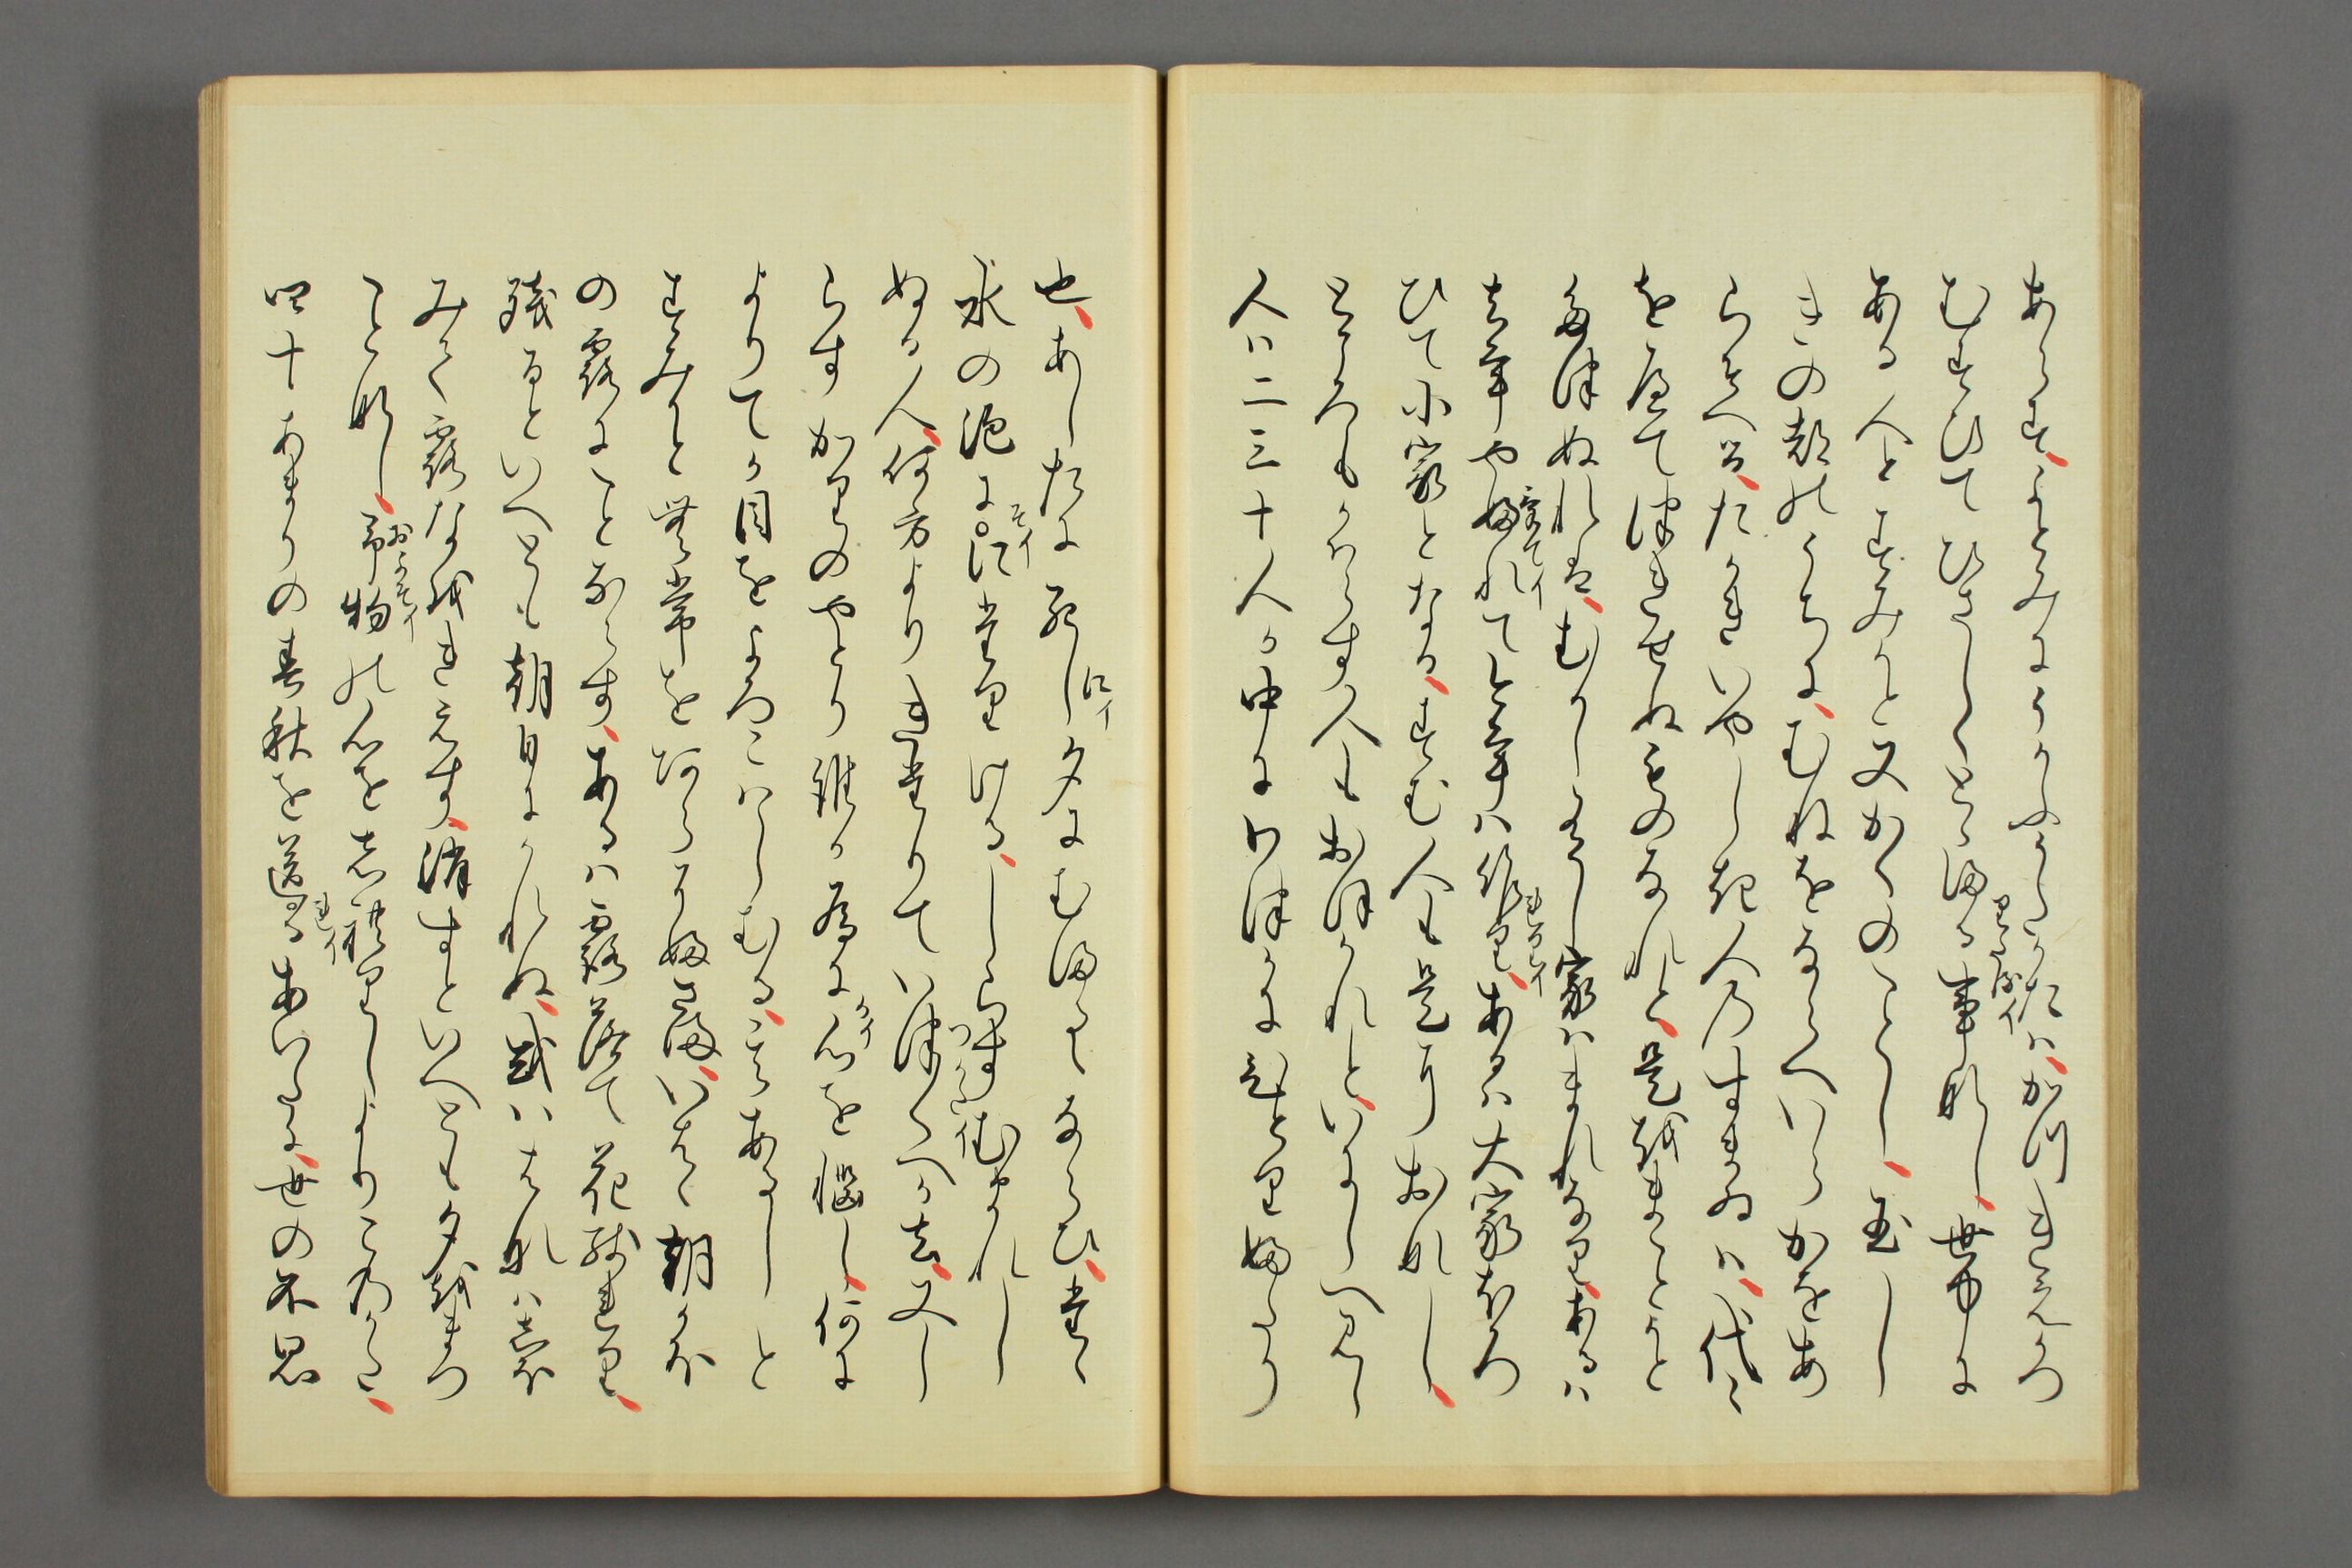 あらす、よとみにうかふうたかたハ、かつきえかつ
むすひてひさしくとゝまる事なし、世中に
ある人とすみかと又かくのことし、玉し
きの都のうちに、むねをならへいらかをあ
らそへる、たかきいやしき人のすまゐハ、代々
を歴てつきせぬものなれと、是をまことかと
たつぬれは、むかしありし家ハまれなり、あるハ
去年やふれて今年ハ作り、あるハ大家ほろ
ひて小家となる、すむ人も是に おなし、
ところもかはらす人もおほかれと、いにしへ見し
人ハ二三十人か中にわつかにひとりふたり
也、あしたに死し夕にむまるゝならひ、たゝ
水の泡に似たりける、しらすむまれし
ぬる人、何方よりきたりていつくへか去、又し
らすかりのやとり誰か為に心を悩し、何に
よりてか目をよろこハしむる、そのあるしと
すみかと無常をあらそふさま、いはゝ朝かほ
の露にことならす、あるハ露落て花残れり、
残るといへとも朝日にかれぬ、或ハはなハしほ
みて露なをきえす、消すといへとも夕をまつ
ことなし、予物の心をしれりしよりこのかた、
四十あまりの春秋を送るあひたに、世の不思